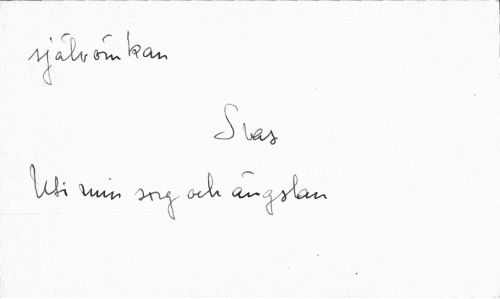 självömkan
Svas
Uti min sorg och ängslan